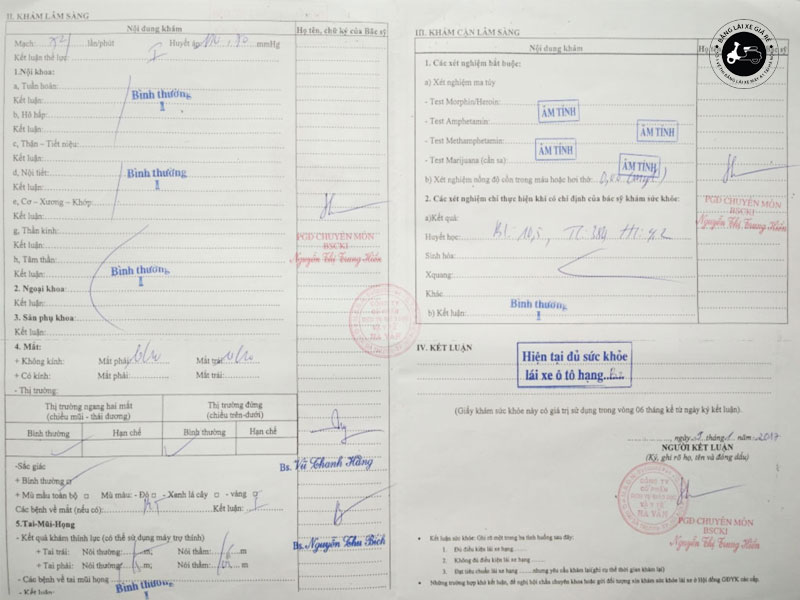 II. KHÁM LÂM SÀNG
Nội dung khám
Họ tên, chữ ký của Bác sỹ
Mạch: lần/phút Huyết áp: mmHg
Kết luận thể lực: I
1.Nội khoa:
a, Tuần hoàn:
Bình thường
Kết luận:
1
b, Hô hấp:
Kết luận:
c, Thận – Tiết niệu:
Kết luận:
d, Nội tiết:
Bình thường
Kết luận:
1
e, Cơ – Xương – Khớp:
Kết luận:
g, Thần kinh:
PGĐ CHUYÊN MÔN
Kết luận:
BSCKI
h, Tâm thần:
Nguyễn Thị Trung Hiền
Kết luận:
Bình thường
2. Ngoại khoa:
1
Kết luận:
3. Sản phụ khoa:
Kết luận:
4. Mắt:
+ Không kính: Mắt phải: Mắt trái:
+ Có kính: Mắt phải: Mắt trái:
- Thị trường:
Thị trường ngang hai mắt
(chiều mũi - thái dương)
Thị trường đứng
(chiều trên-dưới)
Bình thường Hạn chế Bình thường Hạn chế
-Sắc giác
Bs. Vũ Thanh Hằng
+ Bình thường □
+ Mù màu toàn bộ □ Mù màu: - Đỏ □ - Xanh lá cây □ - vàng □
Các bệnh về mắt (nếu có): Kết luận: I
5.Tai-Mũi-Họng
- Kết quả khám thính lực (có thể sử dụng máy trợ thính)
+ Tai trái: Nói thường: m; Nói thầm: m;
Bs. Nguyễn Thu Bích
+ Tai phải: Nói thường: m; Nói thầm: m;
- Các bệnh về tai mũi họng
Bình thường
- Kết luận:
1
III. KHÁM CẬN LÂM SÀNG
BẰNG LÁI XE GIÁ RẺ
Nội dung khám
1. Các xét nghiệm bắt buộc:
a) Xét nghiệm ma túy
- Test Morphin/Heroin: ÂM TÍNH
- Test Amphetamin: ÂM TÍNH
- Test Methamphetamin: ÂM TÍNH
- Test Marijuana (cần sa): ÂM TÍNH
b) Xét nghiệm nồng độ cồn trong máu hoặc hơi thở:
2. Các xét nghiệm chỉ thực hiện khi có chỉ định của bác sỹ khám sức khỏe:
PGĐ CHUYÊN MÔN
BSCKI
Nguyễn Thị Trung Hiền
a)Kết quả:
Huyết học:
Sinh hóa:
Xquang:
Khác
b) Kết luận: Bình thường
1
IV. KẾT LUẬN
Hiện tại đủ sức khỏe
lái xe ô tô hạng
(Giấy khám sức khỏe này có giá trị sử dụng trong vòng 06 tháng kể từ ngày ký kết luận).
ngày 9 tháng 1 năm 2017
NGƯỜI KẾT LUẬN
(Ký, ghi rõ họ, tên và đóng dấu)
CÔNG TY
CỔ PHẦN
HÀ VÂN
PGĐ CHUYÊN MÔN
BSCKI
Nguyễn Thị Trung Hiền
• Kết luận sức khỏe: Ghi rõ một trong ba tình huống sau đây:
1. Đủ điều kiện lái xe hạng
2. Không đủ điều kiện lái xe hạng
3. Đạt tiêu chuẩn lái xe hạng nhưng yêu cầu khám lại(ghi cụ thể thời gian khám lại)
• Những trường hợp khó kết luận, đề nghị hội chẩn chuyên khoa hoặc gửi đối tượng xin khám sức khỏe lái xe ở Hội đồng GĐYK các cấp.